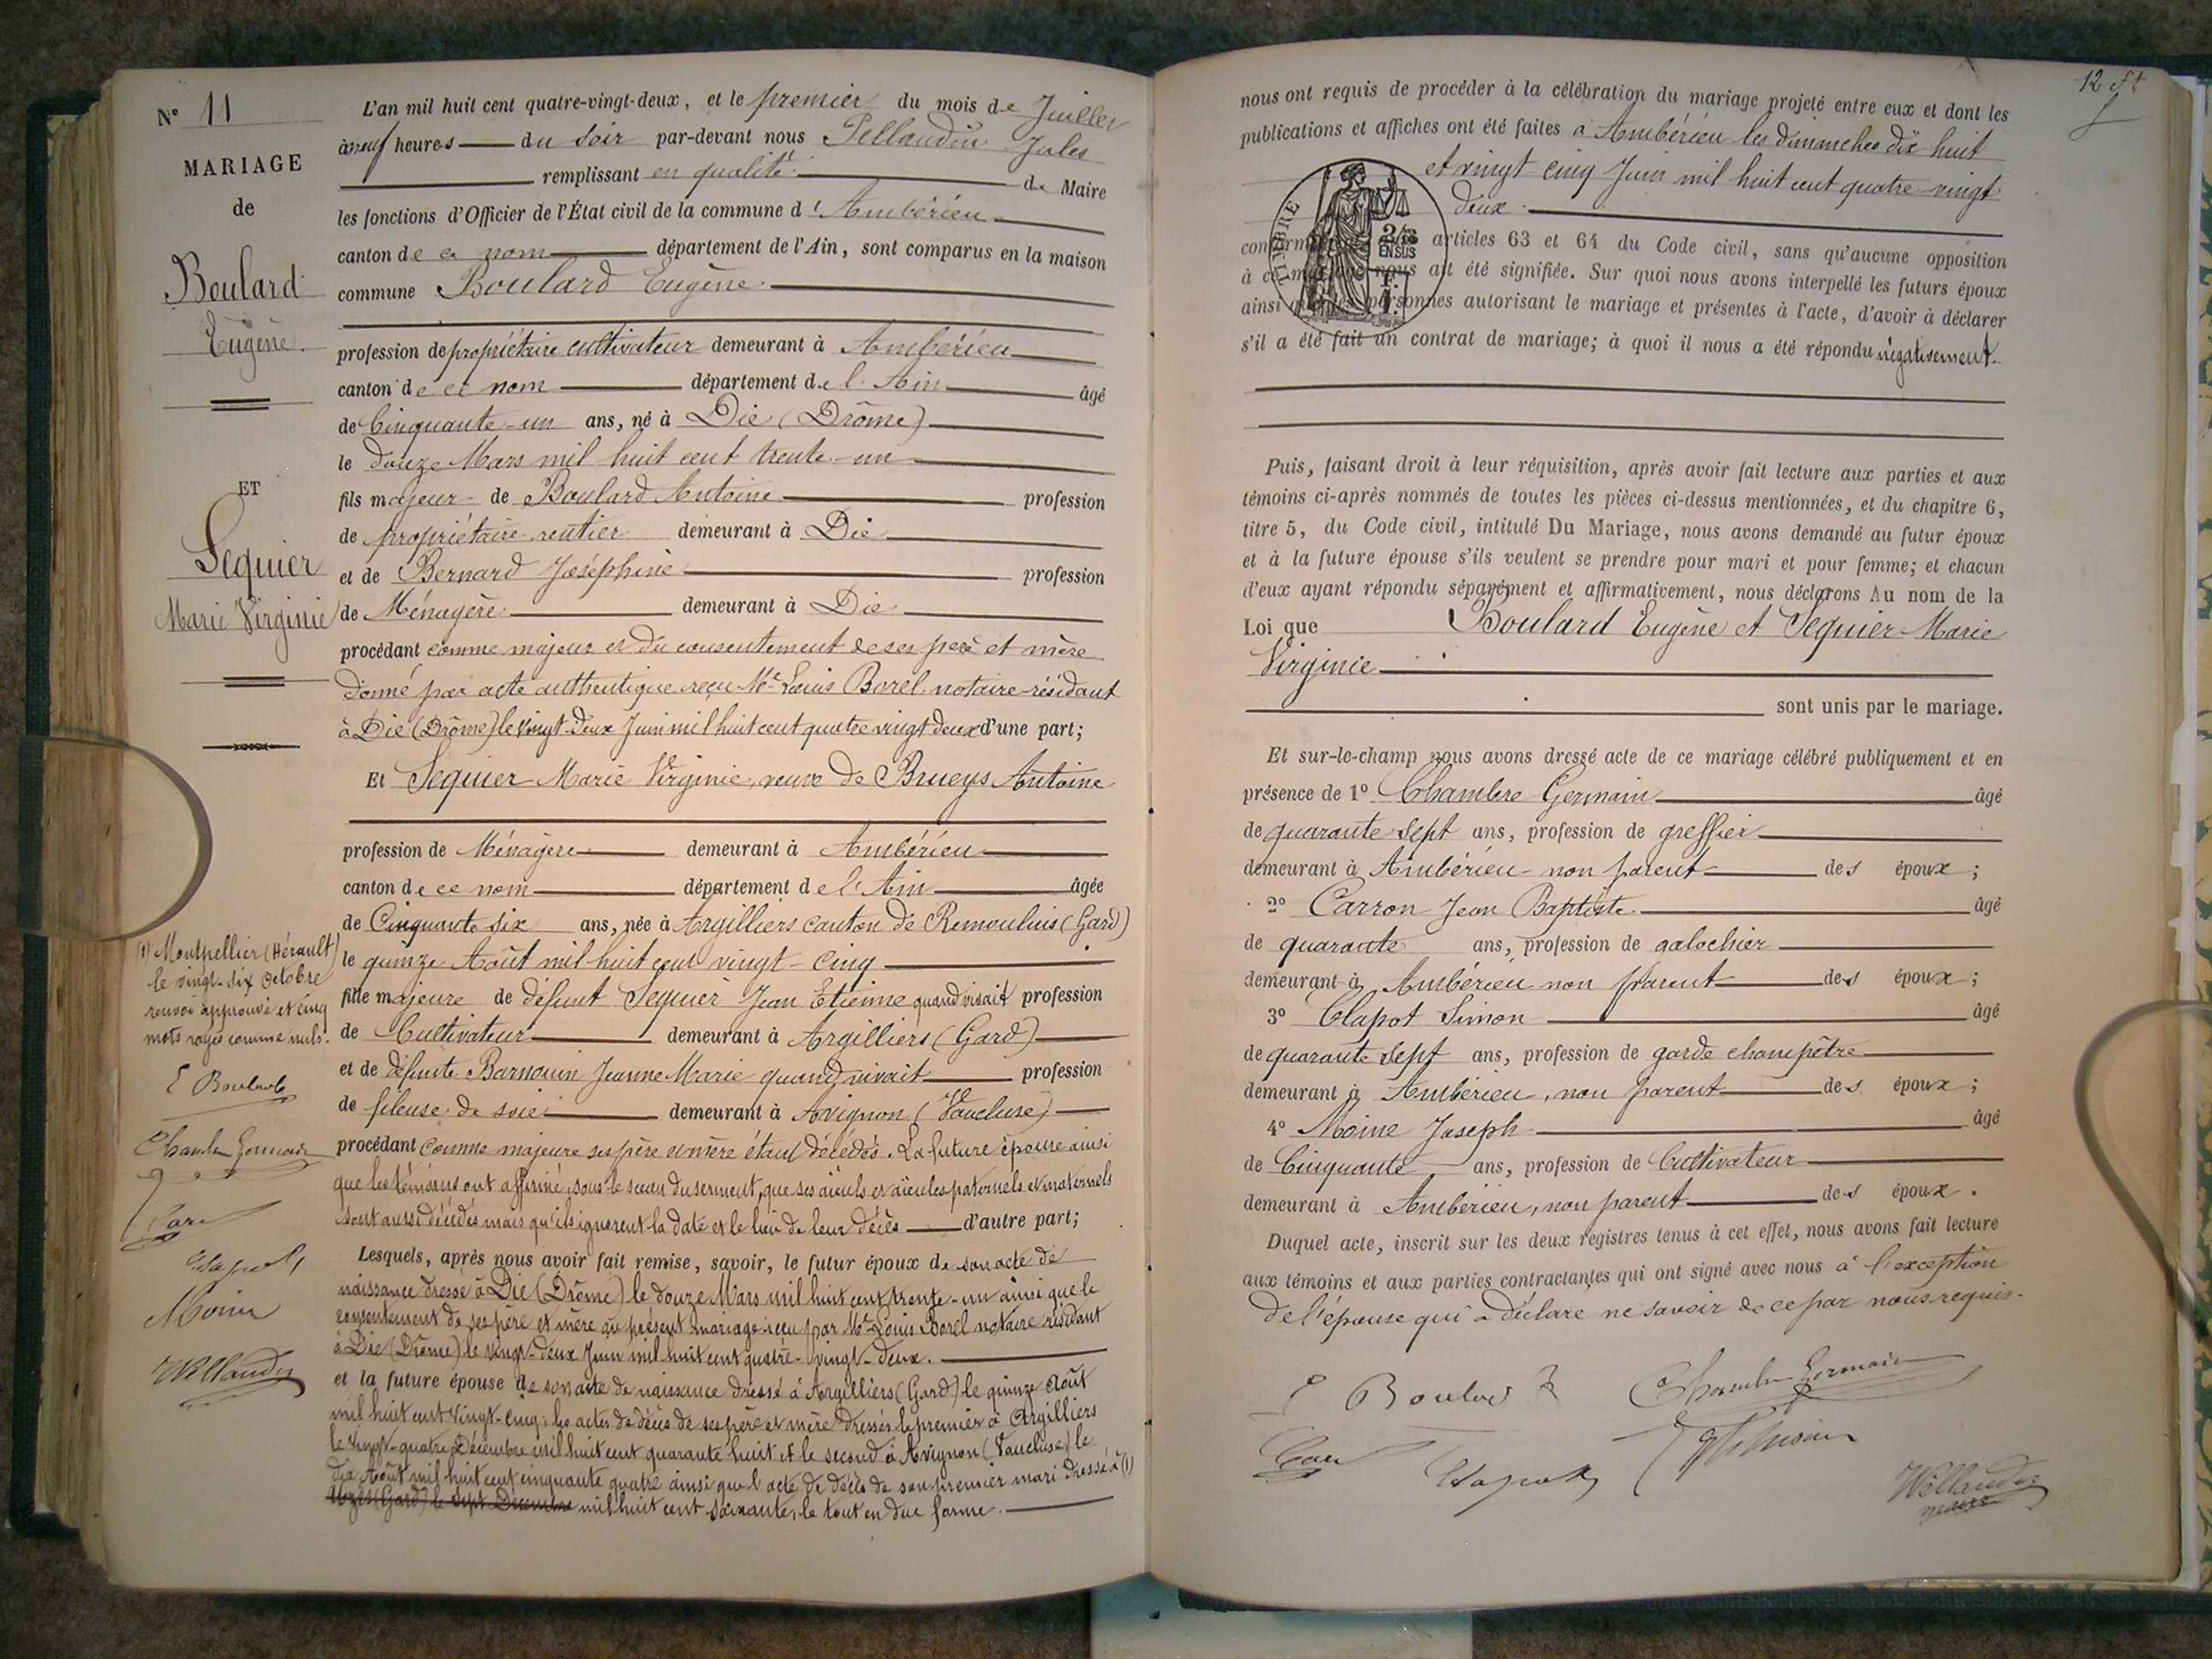 N° 11
MARIAGE
de
Boulard
Eugène
ET
Sequier
Marie Virginie
(1) Montpellier (Hérault)
le vingt-six octobre
renvoi approuvé et cinq
mots rayés comme nuls.
E Boulard
Chambre Germain
Carr
Clapot
Moine
Pellaudin
L'an mil huit cent quatre-vingt-deux, et le premier du mois de Juillet
à neuf heures du soir par-devant nous Pellaudin Jules
remplissant en qualité de Maire
les fonctions d'Officier de l'État civil de la commune d'Ambérieu
canton de ce nom département de l'Ain, sont comparus en la maison
commune Boulard Eugène
profession de propriétaire cultivateur demeurant à Ambérieu
canton de ce nom département de l'Ain âgé
de Cinquante-un ans, né à Die (Drôme)
le douze Mars mil huit cent trente-un
fils majeur de Boulard Antoine profession
de propriétaire rentier demeurant à Die
et de Bernard Joséphine profession
de Ménagère demeurant à Die
procédant comme majeur et du consentement de ses père et mère
donné par acte authentique reçu Me Louis Borel notaire résidant
à Die (Drôme) le vingt-deux Juin mil huit cent quatre vingt deux d'une part;
Et Sequier Marie Virginie, veuve de Brueys Antoine
profession de Ménagère demeurant à Ambérieu
canton de ce nom département de l'Ain âgée
de Cinquante six ans, née à Argilliers canton de Remoulins (Gard)
le quinze Août mil huit cent vingt-cinq
fille majeure de défunt Sequier Jean Etienne quand vivait profession
de Cultivateur demeurant à Argilliers (Gard)
et de défunte Barnouin Jeanne Marie quand vivait profession
de fileuse de soie demeurant à Avignon (Vaucluse)
procédant comme majeure ses père et mère étant décédés. La future épouse ainsi
que les témoins ont affirmé, sous le sceau du serment, que ses aïeuls et aïeules paternels et maternels
sont aussi décédés mais qu'ils ignorent la date et le lieu de leur décès d'autre part;
Lesquels, après nous avoir fait remise, savoir, le futur époux de son acte de
naissance dressé à Die (Drôme) le douze Mars mil huit cent trente-un ainsi que le
consentement de ses père et mère au présent mariage reçu par Me Louis Borel notaire résidant
à Die (Drôme) le vingt-deux Juin mil huit cent quatre-vingt-deux.
et la future épouse de son acte de naissance dressé à Argilliers (Gard) le quinze Août
mil huit cent vingt-cinq; les actes de décès de ses père et mère dressés le premier à Argilliers
le vingt-quatre Décembre mil huit cent quarante huit et le second à Avignon (Vaucluse) le
dix Août mil huit cent cinquante quatre ainsi que l'acte de décès de son premier mari dressé à (1)
Uzès (Gard) le sept Décembre mil huit cent soixante, le tout en due forme.
12 f
nous ont requis de procéder à la célébration du mariage projeté entre eux et dont les
publications et affiches ont été faites à Ambérieu les dimanches dix huit
et vingt cinq Juin mil huit cent quatre-vingt
deux.
TIMBRE
2/10
EN SUS
articles 63 et 64 du Code civil, sans qu'aucune opposition
à ce mariage nous ait été signifiée. Sur quoi nous avons interpellé les futurs époux
ainsi que les personnes autorisant le mariage et présentes à l'acte, d'avoir à déclarer
s'il a été fait un contrat de mariage; à quoi il nous a été répondu négativement.
Puis, faisant droit à leur réquisition, après avoir fait lecture aux parties et aux
témoins ci-après nommés de toutes les pièces ci-dessus mentionnées, et du chapitre 6,
titre 5, du Code civil, intitulé Du Mariage, nous avons demandé au futur époux
et à la future épouse s'ils veulent se prendre pour mari et pour femme; et chacun
d'eux ayant répondu séparément et affirmativement, nous déclarons Au nom de la
Loi que Boulard Eugène et Sequier Marie
Virginie
sont unis par le mariage.
Et sur-le-champ nous avons dressé acte de ce mariage célébré publiquement et en
présence de 1° Chambre Germain âgé
de quarante sept ans, profession de greffier
demeurant à Ambérieu non parent des époux;
2° Carron Jean Baptiste âgé
de quarante ans, profession de galochier
demeurant à Ambérieu non parent des époux;
3° Clapot Simon âgé
de quarante sept ans, profession de garde champêtre
demeurant à Ambérieu, non parent des époux;
4° Moine Joseph âgé
de Cinquante ans, profession de Cultivateur
demeurant à Ambérieu, non parent des époux.
Duquel acte, inscrit sur les deux registres tenus à cet effet, nous avons fait lecture
aux témoins et aux parties contractantes qui ont signé avec nous à l'exception
de l'épouse qui a déclaré ne savoir de ce par nous requis.
E Boulard Chambre Germain
Carr Clapot Moine
Pellaudin
maire